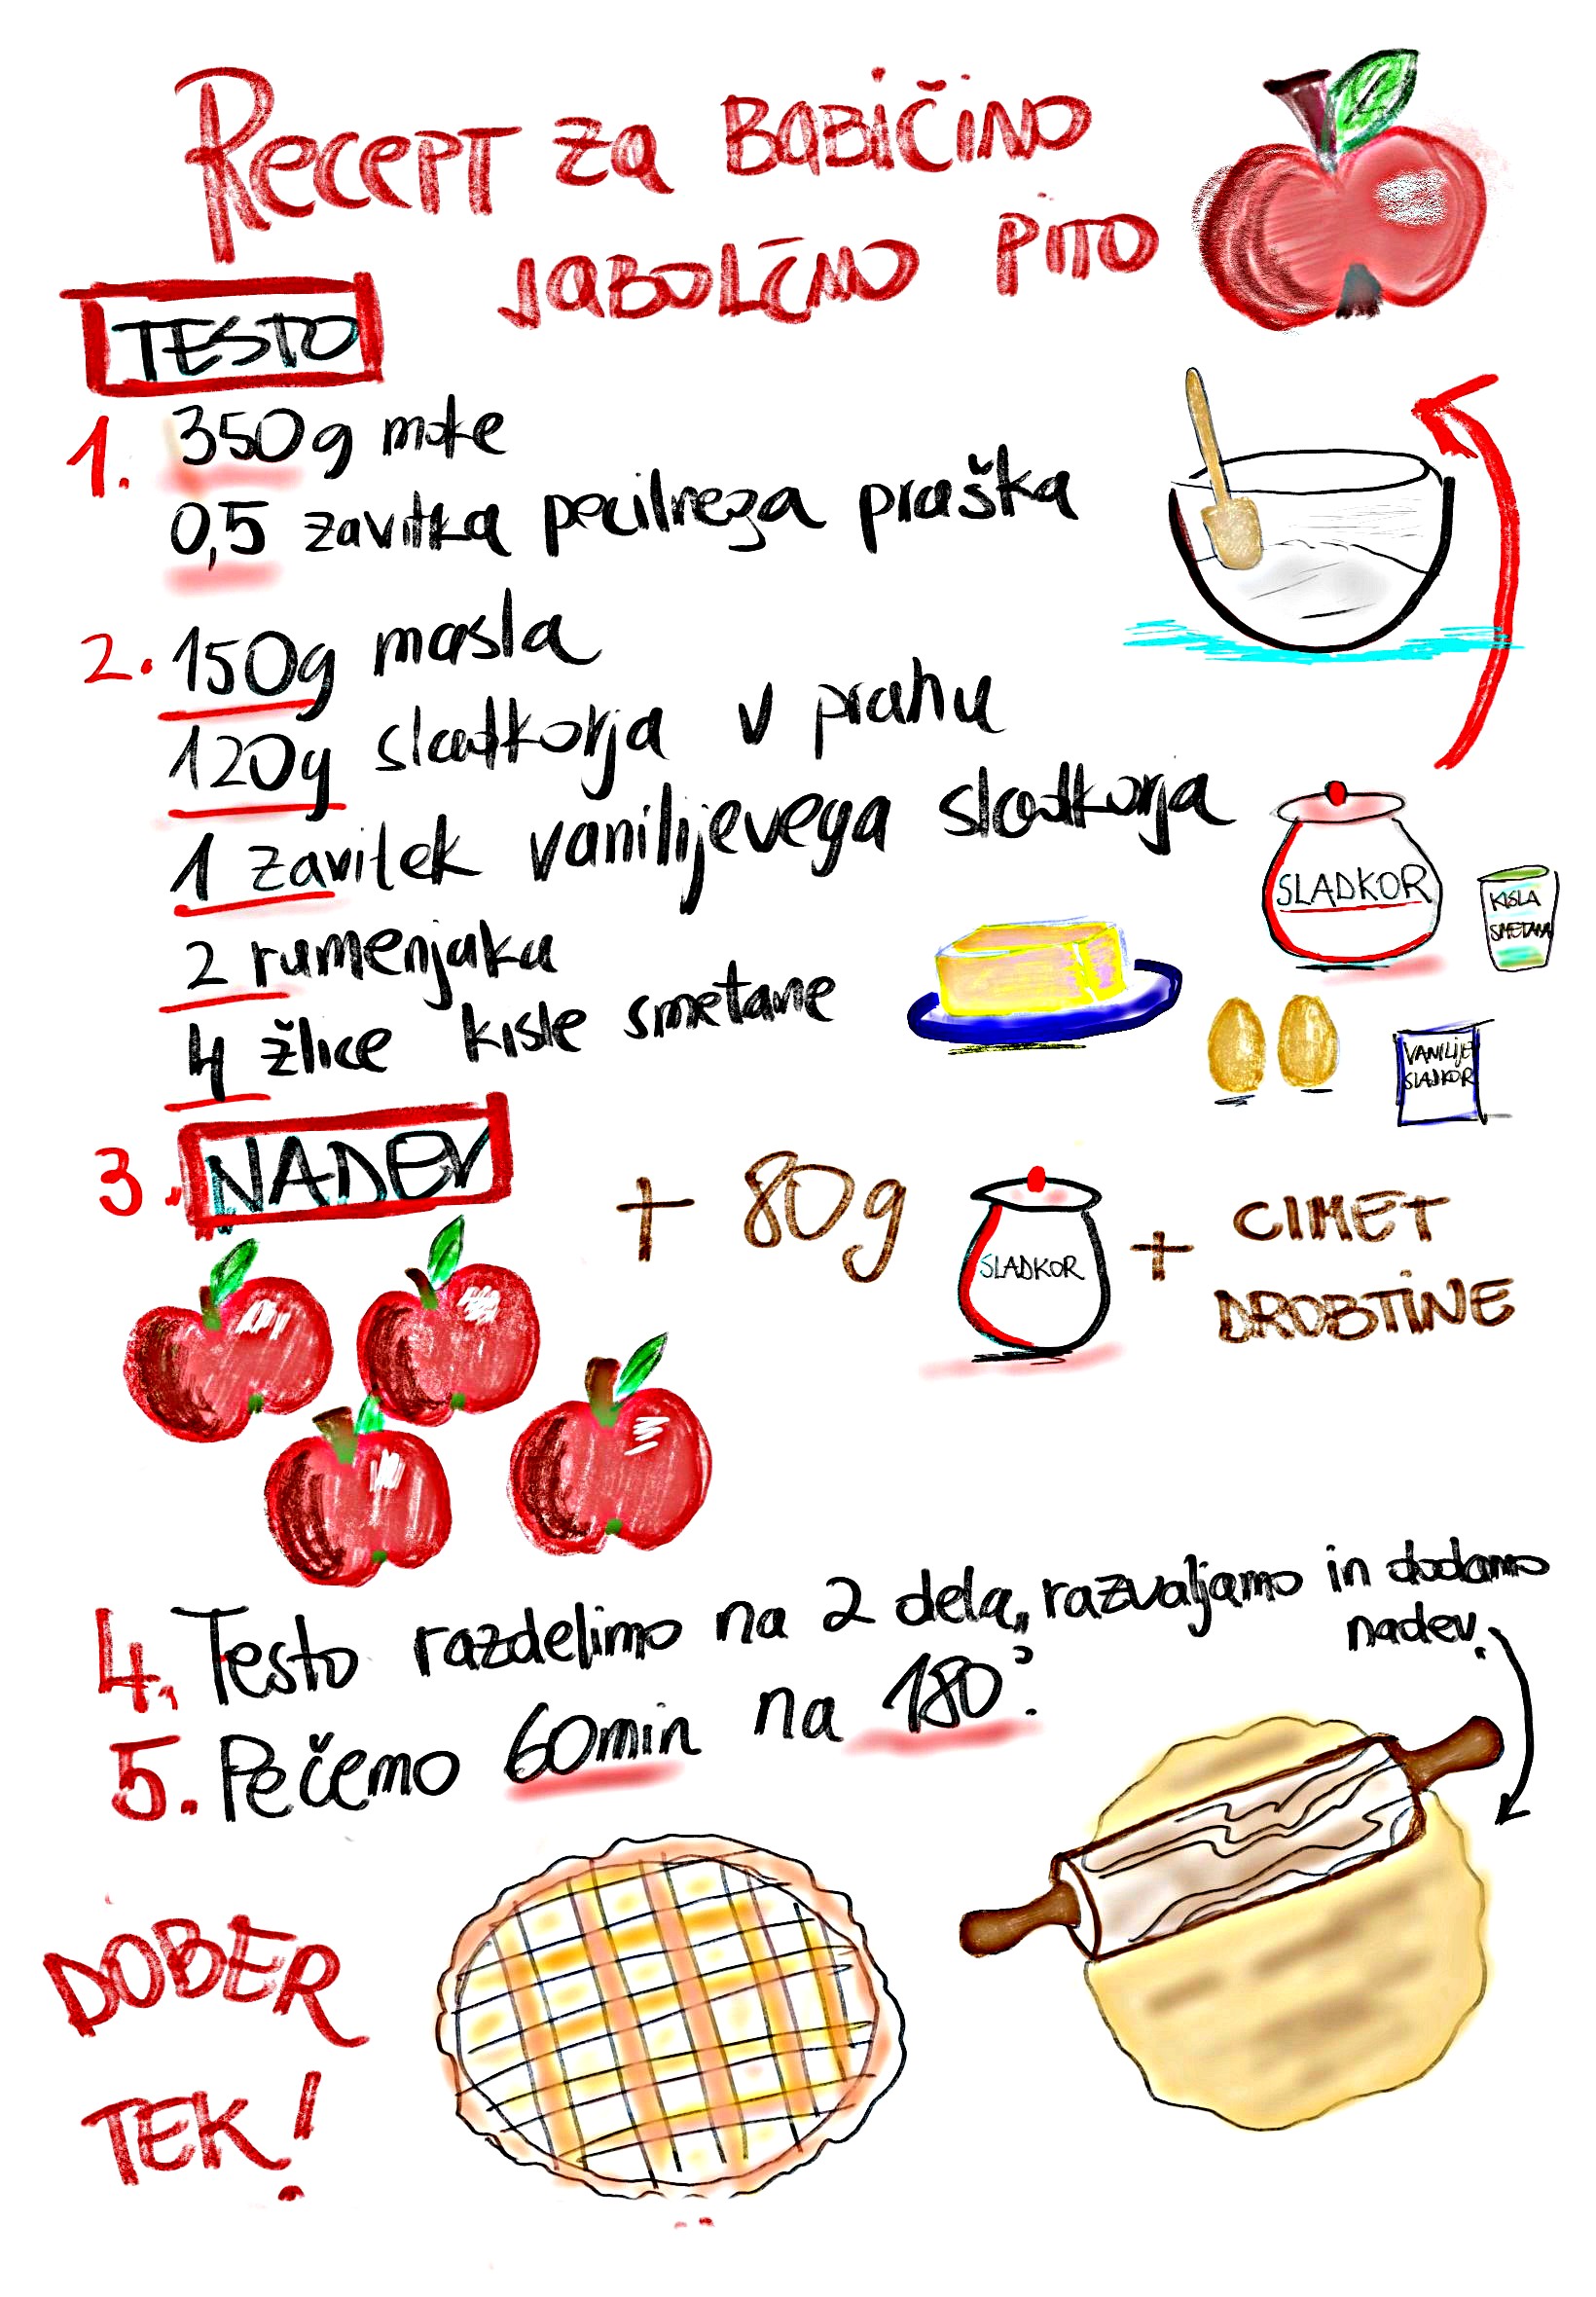 RECEPT ZA BABIČINO
JABOLČNO PITO
TESTO
1. 350g moke
0,5 zavitka pecilnega praška
2. 150g masla
120g sladkorja v prahu
1 zavitek vanilijevega sladkorja
SLADKOR
KISLA
SMETANA
2 rumenjaka
4 žlice kisle smetane
VANILIJE
SLADKOR
3. NADEV
+ 80g SLADKOR + CIMET
DROBTINE
4. Testo razdelimo na 2 dela, razvaljamo in dodamo
nadev.
5. Pečemo 60min na 180°.
DOBER
TEK!